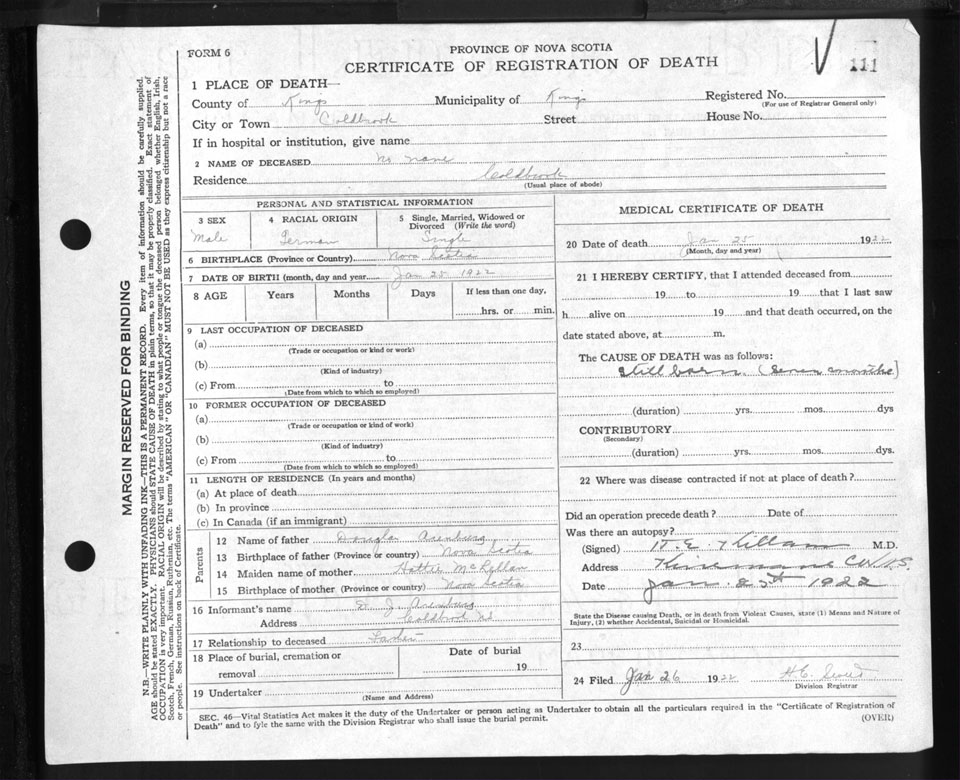 FORM 6
PROVINCE OF NOVA SCOTIA
CERTIFICATE OF REGISTRATION OF DEATH
111
1 PLACE OF DEATH—
County of Kings Municipality of Kings Registered No.
(For use of Registrar General only)
City or Town Coldbrook Street House No.
If in hospital or institution, give name
2 NAME OF DECEASED No Name
Residence Coldbrook
(Usual place of abode)
PERSONAL AND STATISTICAL INFORMATION
3 SEX 4 RACIAL ORIGIN 5 Single, Married, Widowed or Divorced (Write the word)
Male German Single
6 BIRTHPLACE (Province or Country) Nova Scotia
7 DATE OF BIRTH (month, day and year) Jan 25 1922
8 AGE Years Months Days If less than one day,
hrs. or min.
9 LAST OCCUPATION OF DECEASED
(a)
(Trade or occupation or kind or work)
(b)
(Kind of industry)
(c) From to
(Date from which to which so employed)
10 FORMER OCCUPATION OF DECEASED
(a)
(Trade or occupation or kind of work)
(b)
(Kind of industry)
(c) From to
(Date from which to which so employed)
11 LENGTH OF RESIDENCE (In years and months)
(a) At place of death
(b) In province
(c) In Canada (if an immigrant)
Parents
12 Name of father Douglas Arenburg
13 Birthplace of father (Province or country) Nova Scotia
14 Maiden name of mother Hattie
15 Birthplace of mother (Province or country) Nova Scotia
16 Informant's name D. J. Arenburg
Address Coldbrook NS
17 Relationship to deceased Father
18 Place of burial, cremation or removal Date of burial
19
19 Undertaker
(Name and Address)
MEDICAL CERTIFICATE OF DEATH
20 Date of death Jan 25 1922
(Month, day and year)
21 I HEREBY CERTIFY, that I attended deceased from
19 to 19 that I last saw
h alive on 19 and that death occurred, on the
date stated above, at m.
The CAUSE OF DEATH was as follows:
Still born. (Seven months)
(duration) yrs. mos. dys
CONTRIBUTORY
(Secondary)
(duration) yrs. mos. dys.
22 Where was disease contracted if not at place of death?
Did an operation precede death? Date of
Was there an autopsy?
(Signed) M.D.
Address
Date Jan. 25th 1922
State the Disease causing Death, or in death from Violent Causes, state (1) Means and Nature of
Injury, (2) whether Accidental, Suicidal or Homicidal.
23
24 Filed Jan 26 1922
Division Registrar
SEC. 46—Vital Statistics Act makes it the duty of the Undertaker or person acting as Undertaker to obtain all the particulars required in the "Certificate of Registration of
Death" and to fyle the same with the Division Registrar who shall issue the burial permit.
(OVER)
MARGIN RESERVED FOR BINDING
N.B.—WRITE PLAINLY WITH UNFADING INK—THIS IS A PERMANENT RECORD. Every item of information should be carefully supplied.
AGE should be stated EXACTLY. PHYSICIANS should STATE CAUSE OF DEATH in plain terms, so that it may be properly classified. Exact statement of
OCCUPATION is very important. RACIAL ORIGIN will be described by stating to what people or tongue the deceased person belonged whether English, Irish,
Scotch, French, German, Russian, Ruthenian, etc. The terms "AMERICAN" OR "CANADIAN" MUST NOT BE USED as they express citizenship but not a race
or people. See instructions on back of Certificate.